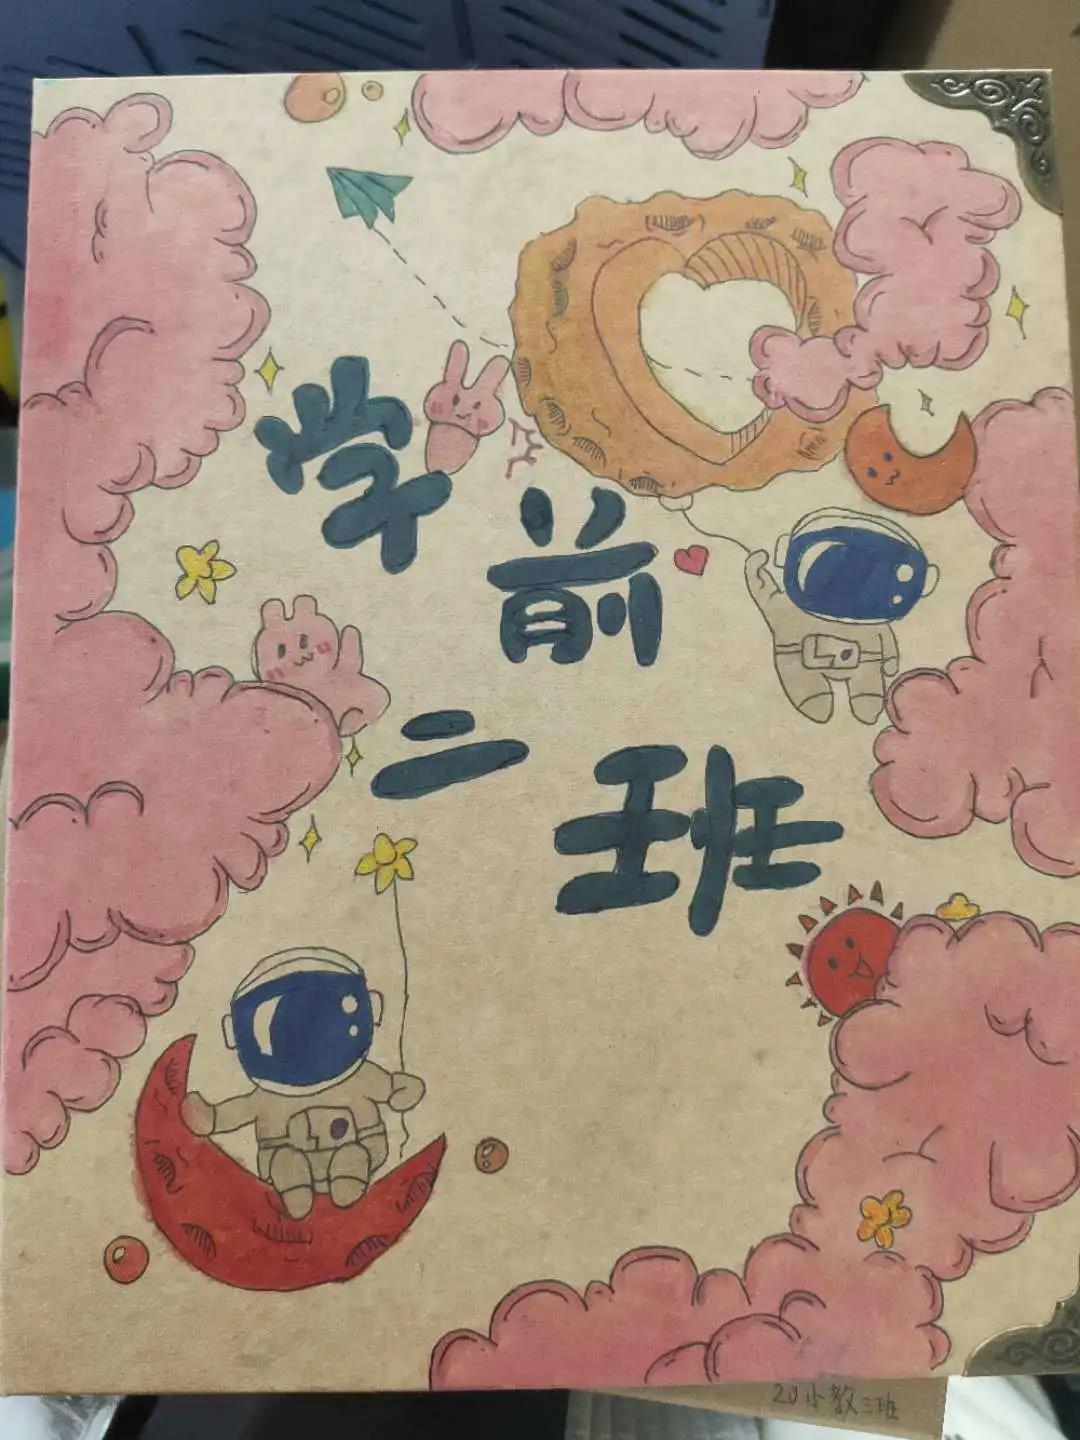 学前
二班
20小教三班